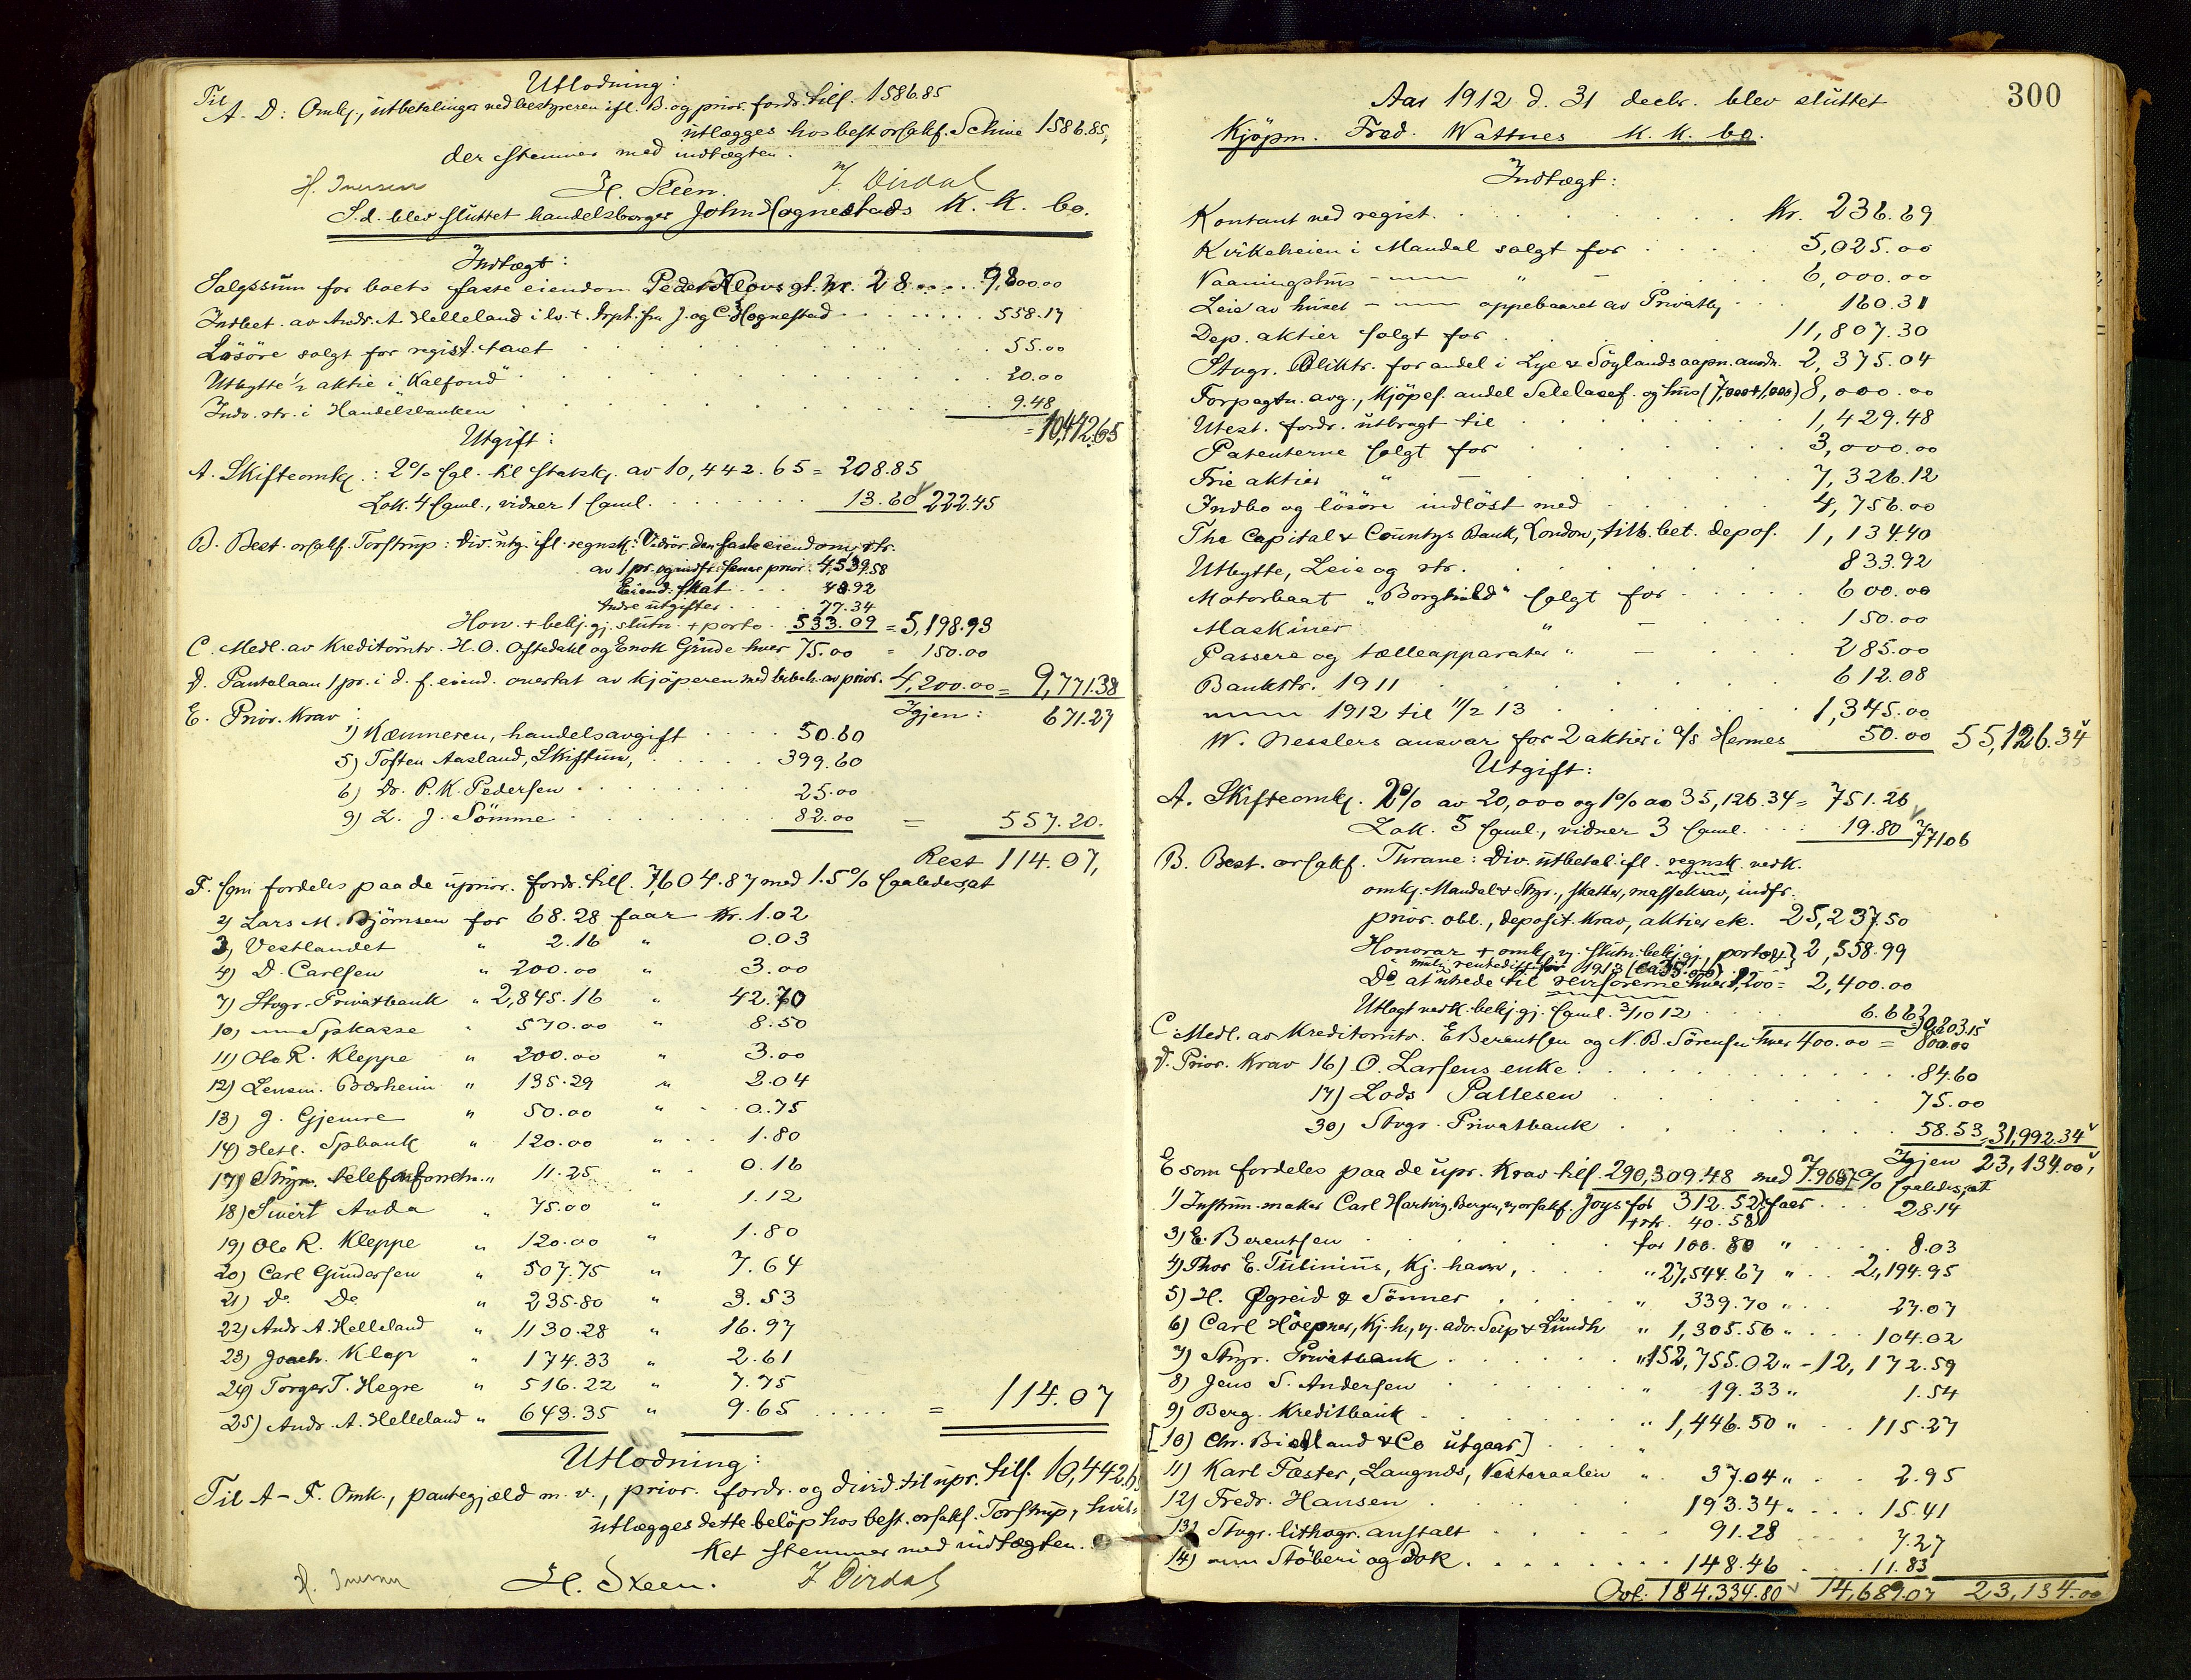 Utlodning:
Til A-D: Omk., utbetalinger ved bestyreren ifl. B. og prior. fordr. tils. 1586.85
utlægges hos best. orsakf. Schiøe 1586.85,
der stemmer med indtægten.
H. Iversen H. Skeen. J. Dirdal
S.d. blev sluttet handelsborger John Hognestads K. K. bo.
Indtægt:
Salgssum for boets faste eiendom Peder Klovs gt. nr. 28 9,800.00
Indbet. av Andr. A. Helleland i hv. t. Irpt. fra J. og C. Hognestad 558.17
Lösöre solgt for regist. taxt 55.00
Utbytte ½ aktie i "Kalfond" 20.00
Indv. rtr. i Handelsbanken 9.48
= 10,442.65
Utgift:
A. Skifteomk.: 2% sgl. til statsk. av 10,442.65 = 208.85
Lok. 4 saml., vidner 1 saml. 13.60 222.45
B. Best. orsakf. Torstrup: Div. utg. ifl. regnsk: Vedrör. den faste eiendom, rtr.
av 1 pr. og indfr. senere prior. 4,539.58
Eiend. skat 48.92
Andre utgifter 77.34
Hon. + bekj. gj. slutn. + porto 533.09 = 5,198.93
C. Medl. av Kreditorutv. H. O. Oftedahl og Enok Grude hver 75.00 = 150.00
D. Pantelaan 1 pr. i d. f. eiend. overtat av kjöperen med bibeh. av prior. 4,200.00 = 9,771.38
Igjen: 671.27
E. Prior. Krav:
1) Kæmneren, handelsavgift 50.60
5) Torsten Aasland, Skiftun, 399.60
6) Dr. P. K. Pedersen 25.00
9) L. J. Sömme 82.00 = 557.20.
Rest 114.07,
F. som fordeles paa de uprior. fordr. tils. 7,604.87 med 1.5% saaledes, at
2) Lars M. Björnsen for 68.28 faar Kr. 1.02
3) Vestlandet " 2.16 " 0.03
4) D. Carlsen " 200.00 " 3.00
7) Stvgr. Privatbank " 2,845.16 " 42.70
10) " Spkasse " 570.00 " 8.50
11) Ole R. Kleppe " 200.00 " 3.00
12) Lensm. Bærheim " 135.29 " 2.04
13) J. Gjemre " 50.00 " 0.75
14) Hetl. Spbank " 120.00 " 1.80
17) Stvgr. telefonforretn. " 11.25 " 0.16
18) Sivert Auda " 75.00 " 1.12
19) Ole R. Kleppe " 120.00 " 1.80
20) Carl Gundersen " 507.75 " 7.64
21) Do Do " 235.80 " 3.53
22) Andr A. Helleland " 1130.28 " 16.97
23) Joach. Klop " 174.33 " 2.61
24) Torger T. Hegre " 516.22 " 7.75
25) Andr. A. Helleland " 643.35 " 9.65 = 114.07
Utlodning:
Til A-F. Omk., pantegjæld m. v., prior. fordr. og divid. til upr. tils. 10,442.6
utlægges dette belöp hos best. orsakf. Torstrup, hvil-
ket stemmer med indtægten.
H. Iversen H. Skeen. J Dirdal
300
Aar 1912 d. 31 decbr. blev sluttet
Kjöpm. Fred. Wattnes K. K. bo.
Indtægt:
Kontant ved regist. Kr. 236.69
Kirkeheien i Mandal solgt for 5,025.00
Vaaningshus " — 6,000.00
Leie av huset — oppebaaret av Privatb. 160.31
Dep. aktier solgt for 11,807.30
Stvgr. Bliktr. for andel i Lye & Söylands aapn. andr. 2,375.04
Forpagtn. avg., Kjöpes. andel Selelaxef. og hus (7,000+1,000) 8,000.00
Utest. fordr. utbragt til 1,429.48
Patenterne solgt for 3,000.00
Frie aktier " — 7,326.12
Indbo og lösöre indlöst med 4,756.00
The Capital & Countys Bank, London, tilb. bet. depos. 1,134.40
Utbytte, Leie og rtr. 833.92
Motorbaat "Borghild" solgt for 600.00
Maskiner " — 150.00
Passere og tælleapparater " — 285.00
Bankrtr. 1911 612.08
" 1912 til 11/2 13 1,345.00
W. Nesslers ansvar for 2 aktier i A/S Hermes 50.00 55,126.34
Utgift:
A. Skifteomk. 2% av 20,000 og 1% av 35,126.34 = 751.26
Lok. 5 saml., vidner 3 saml. 19.80 771.06
B. Best. orsakf. Thrane: Div. utbetal. ifl. regnsk. vedk.
omk. Mandal & Stvgr., skatter, massekrav, indfr.
prior. obl., deposit. krav, aktier etc. 25,237.50
Honorar + omk. v. slutn. bekj. gj., porto &
mulig rentediff. for 1913 (ca 35.00) } 2,558.99
Do at utrede til revisorerne hver 1,200 = 2,400.00
Utlagt vedk. bekj. gj. saml. 3/10 12 6.66 30,203.15
C. Medl. av Kreditorutv. E Berentsen og N. B. Sörensen hver 400.00 = 800.00
D. Prior. Krav 16) O. Larsens enke 84.60
17) Lods Pallesen 75.00
30) Stvgr. Privatbank 58.53 = 31,992.34
Igjen 23,134.00,
E som fordeles paa de upr. Krav tils. 290,309.48 med 7.9687% saaledes, at
1) Instrum. maker Carl Hartvig, Bergen, v. orsakf. Joys for 312.52 } faar 28.14
+ rtr. 40.58
3) E. Berentsen for 100.80 " 8.03
4) Thor E. Tulinius, Kj. havn, " 27,544.67 " 2,194.95
5) H. Øgreid & Sönner " 339.70 " 27.07
6) Carl Höepner, Kj. h., v. adv. Seip & Lundh " 1,305.56 " 104.02
7) Stvgr. Privatbank " 152,755.02 " 12,172.59
8) Jens S. Andersen " 19.33 " 1.54
9) Berg. Kreditbank " 1,446.50 " 115.27
[10) Chr. Bielland & Co utgaar] "
11) Karl Fæster, Laugnds, Vesteraalen " 37.04 " 2.95
12) Fredr. Hansen 193.34 " 15.41
13) Stvgr. lithogr. anstalt 91.28 7.27
14) " Stöberi og Dok 148.46 11.83
Ovf. 184,334.80 14,689.07 23,134.00